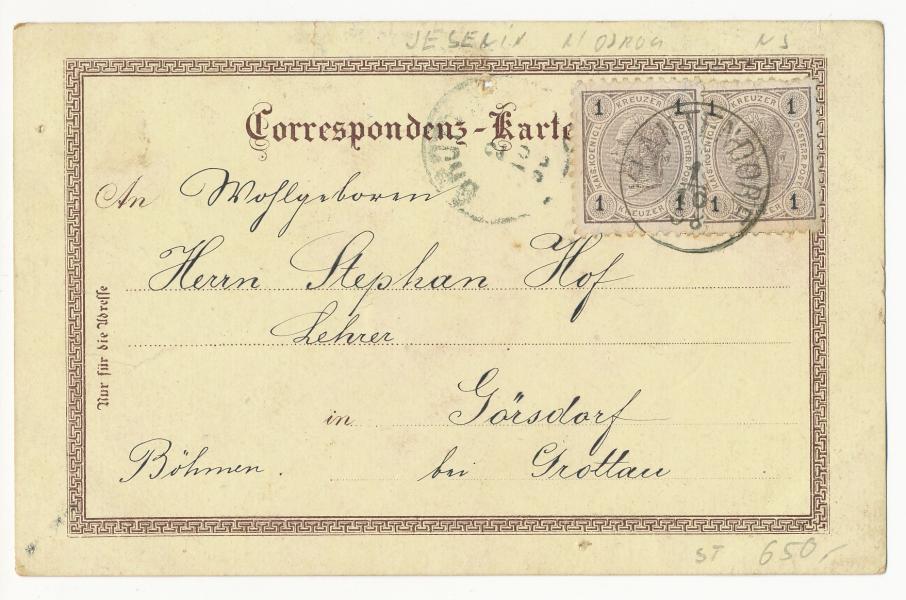 JESENÍK N ODROU NJ
Correspondenz-Karte
1 KREUZER 1 1 KREUZER 1
KAIS. KOENIGL. OESTERR. POST
KAIS. KOENIGL. OESTERR. POST
1 KREUZER 1 1 KREUZER 1
An Wohlgeboren
Herrn Stephan Hof
Lehrer
in Görsdorf
Böhmen. bei Grottau
Nur für die Adresse
ST 650,-